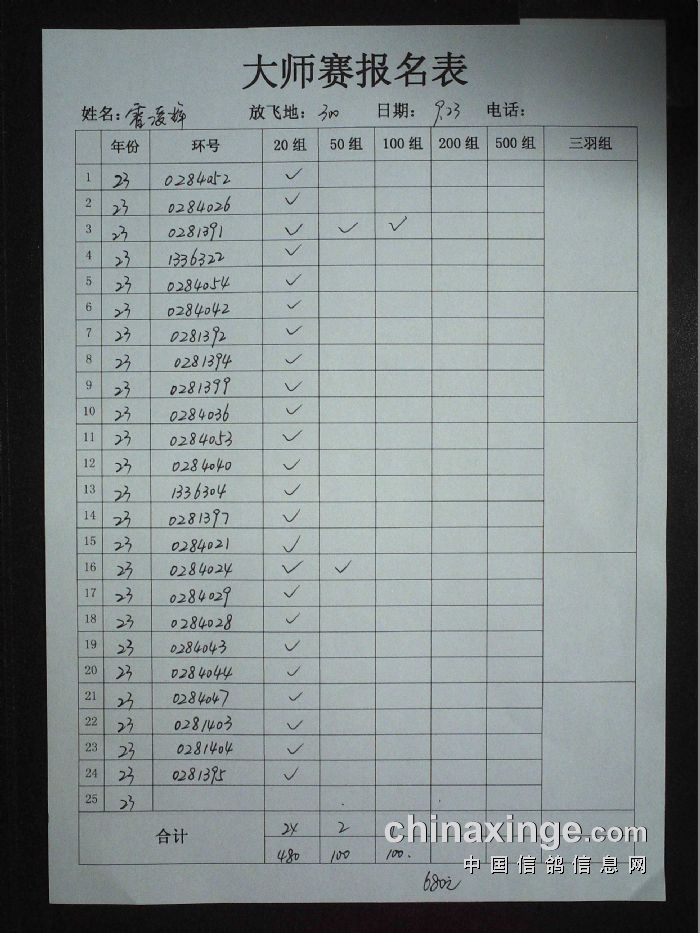 大师赛报名表
姓名: 霍俊辉 放飞地: 300 日期: 9.23 电话:
年份 环号 20组 50组 100组 200组 500组 三羽组
1 23 0284052 ✓
2 23 0284026 ✓
3 23 0281391 ✓ ✓ ✓
4 23 1336322 ✓
5 23 0284054 ✓
6 23 0284042 ✓
7 23 0281392 ✓
8 23 0281394 ✓
9 23 0281399 ✓
10 23 0284036 ✓
11 23 0284053 ✓
12 23 0284040 ✓
13 23 1336304 ✓
14 23 0281397 ✓
15 23 0284021 ✓
16 23 0284024 ✓ ✓
17 23 0284029 ✓
18 23 0284028 ✓
19 23 0284043 ✓
20 23 0284044 ✓
21 23 0284047 ✓
22 23 0281403 ✓
23 23 0281404 ✓
24 23 0281395 ✓
25 23
合计 24 2
480 100 100.
680元
chinaxinge.com
中国信鸽信息网